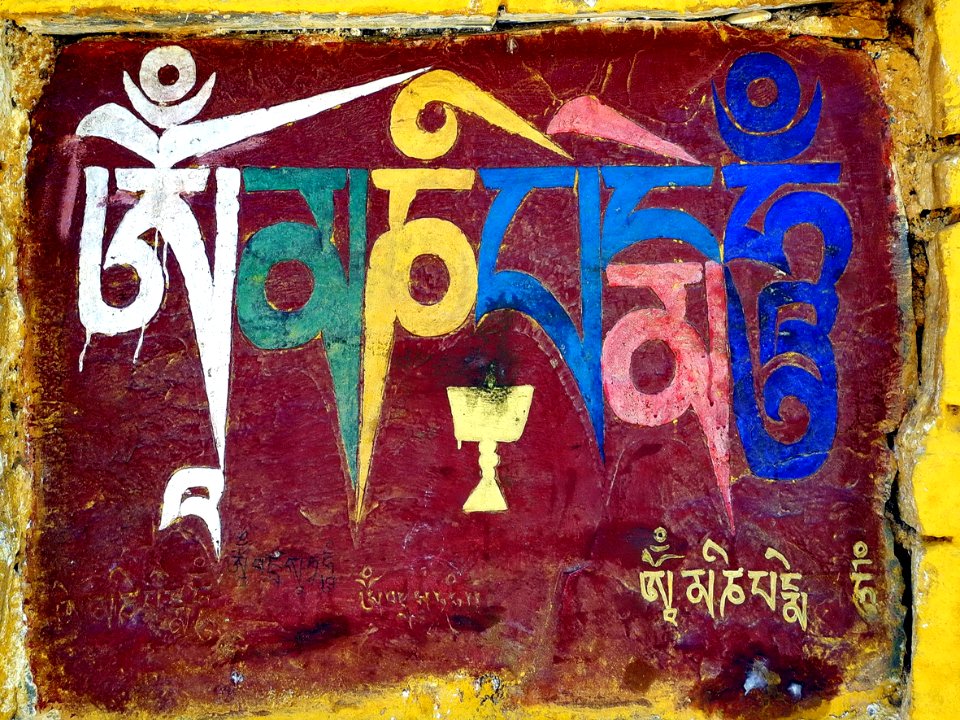 ཨཱོྃ་མ་ཎི་པདྨེ་ཧཱུྃ
ཨཱོྃ་མ་ཎི་པདྨེ་ཧཱུྃ